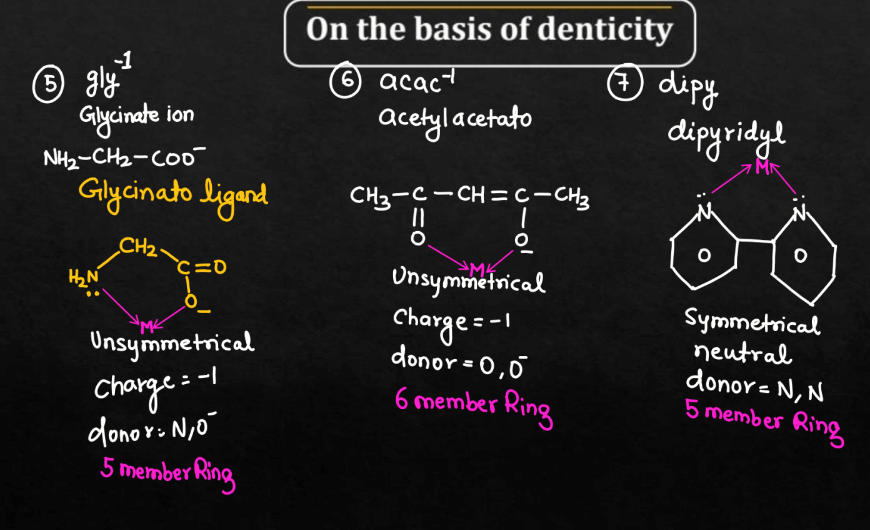 On the basis of denticity
⑤ gly⁻¹
Glycinate ion
NH₂-CH₂-COO⁻
Glycinato ligand
CH₂
H₂N
C=O
O⁻
M
Unsymmetrical
Charge = -1
donor = N, O⁻
5 member Ring
⑥ acac⁻¹
acetylacetato
CH₃-C-CH=C-CH₃
O O⁻
M
Unsymmetrical
Charge = -1
donor = O, O⁻
6 member Ring
⑦ dipy
dipyridyl
M
N N
Symmetrical
neutral
donor = N, N
5 member Ring